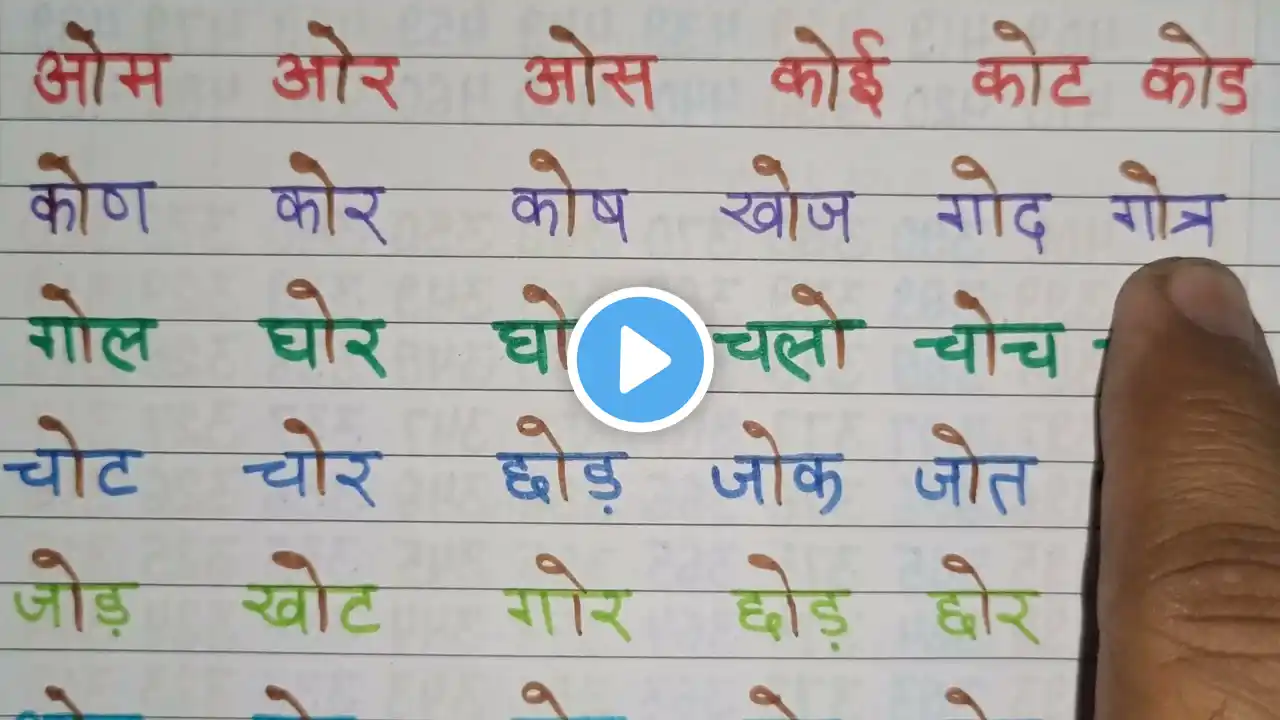 ओम ओर ओस कोई कोट कोड
कोण कोर कोष खोज गोद गोत्र
गोल घोर चलो चोच
चोट चोर छोड़ जोक जोत
जोड़ खोट गोर छोड़ छोर